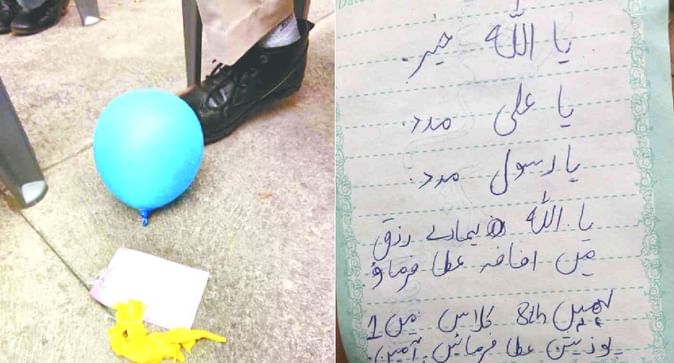 یا اللہ خیر.
یا علی مدد.
یا رسول مدد.
یا اللہ ہمارے رزق
میں اضافہ عطا فرماؤ
ہمیں 8th کلاس میں 1
پوزیشن عطا فرمائیں. آمین.